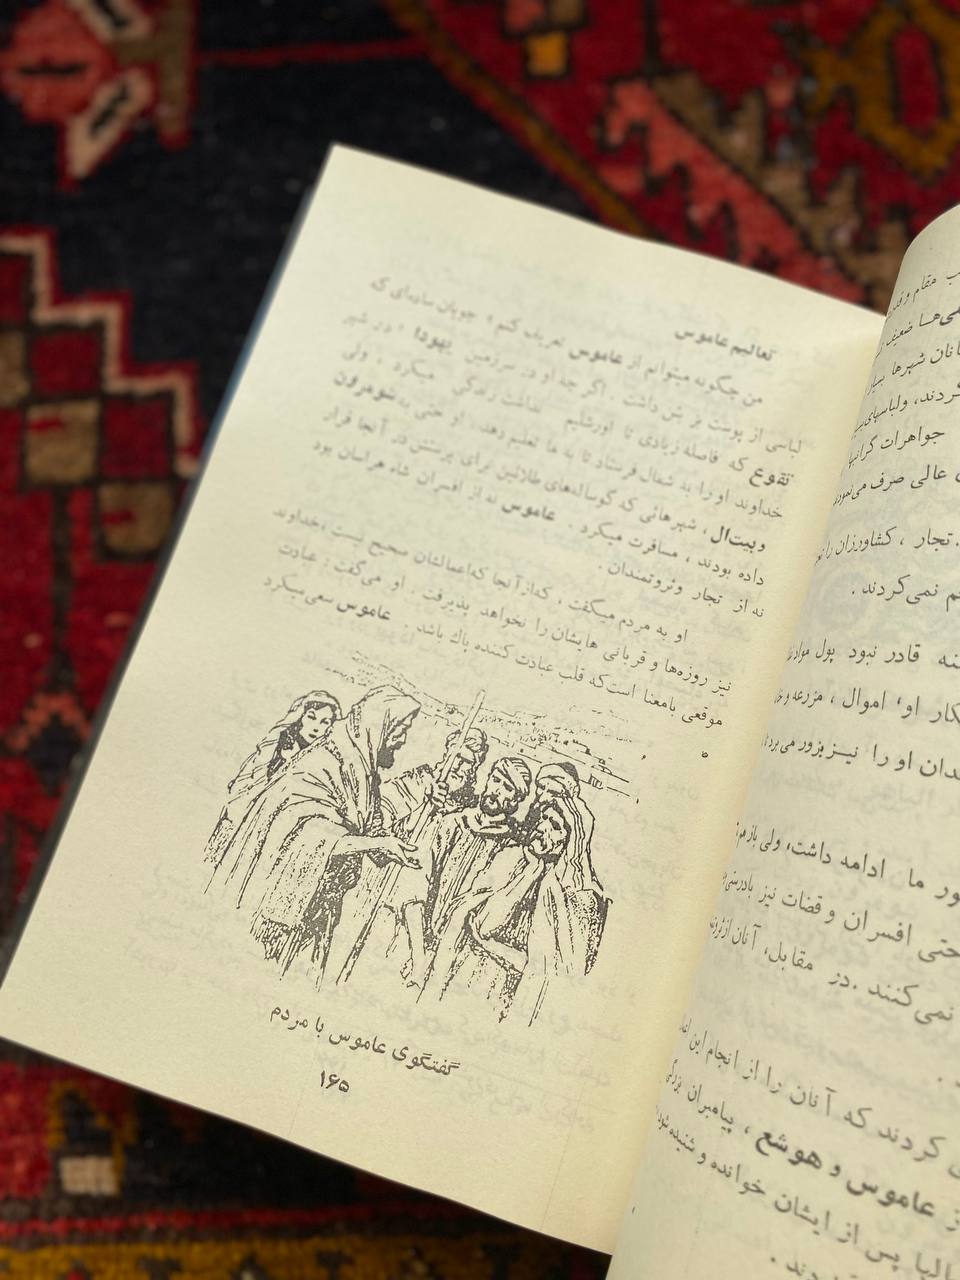 ب مقام و قدر
می‌ها ضعیف
انان شهرها بسیار
کردند، ولباسهای
جواهرات گرانبها
عالی صرف می‌نمودند
تجار ، کشاورزان را
م نمی‌کردند .
نه قادر نبود پول مواد
کار او، اموال ، مزرعه و
دان او را نیـز بزور می برد
ور ما ادامه داشت، ولی باز
حتی افسران و قضات نیز
نمی‌کنند . در مقابل، آنان از
کردند که آنان را از انجام این
ز عاموس و هوشع ، پیامبران بزرگی
البا پس از ایشان خوانده و شنیده شود
دند .
تعالیم عاموس
من چگونه میتوانم از عاموس تعریف کنم ؟ چوپان ساده‌ای که
لباسی از پوست بز بتن داشت . اگر چه او در سرزمین یهودا ، در شهر
تقوع که فاصله زیادی تا اورشلیم نداشت زندگی میکرد ، ولی
خداوند او را به شمال فرستاد تا به ما تعلیم دهد . او حتی به شومرون
و بیت‌ال ، شهرهائی که گوساله‌های طلائین برای پرستش در آنجا قرار
داده بودند ، مسافرت میکرد . عاموس نه از افسران شاه هراسان بود
نه از تجار و ثروتمندان .
او به مردم میگفت ، که از آنجا که اعمالشان صحیح نیست ،خداوند
نیز روزه‌ها و قربانی هایشان را نخواهد پذیرفت . او می‌گفت : عبادت
موقعی بامعنا است که قلب عبادت کننده پاک باشد . عاموس سعی میکرد
گفتگوی عاموس با مردم
۱۶۵